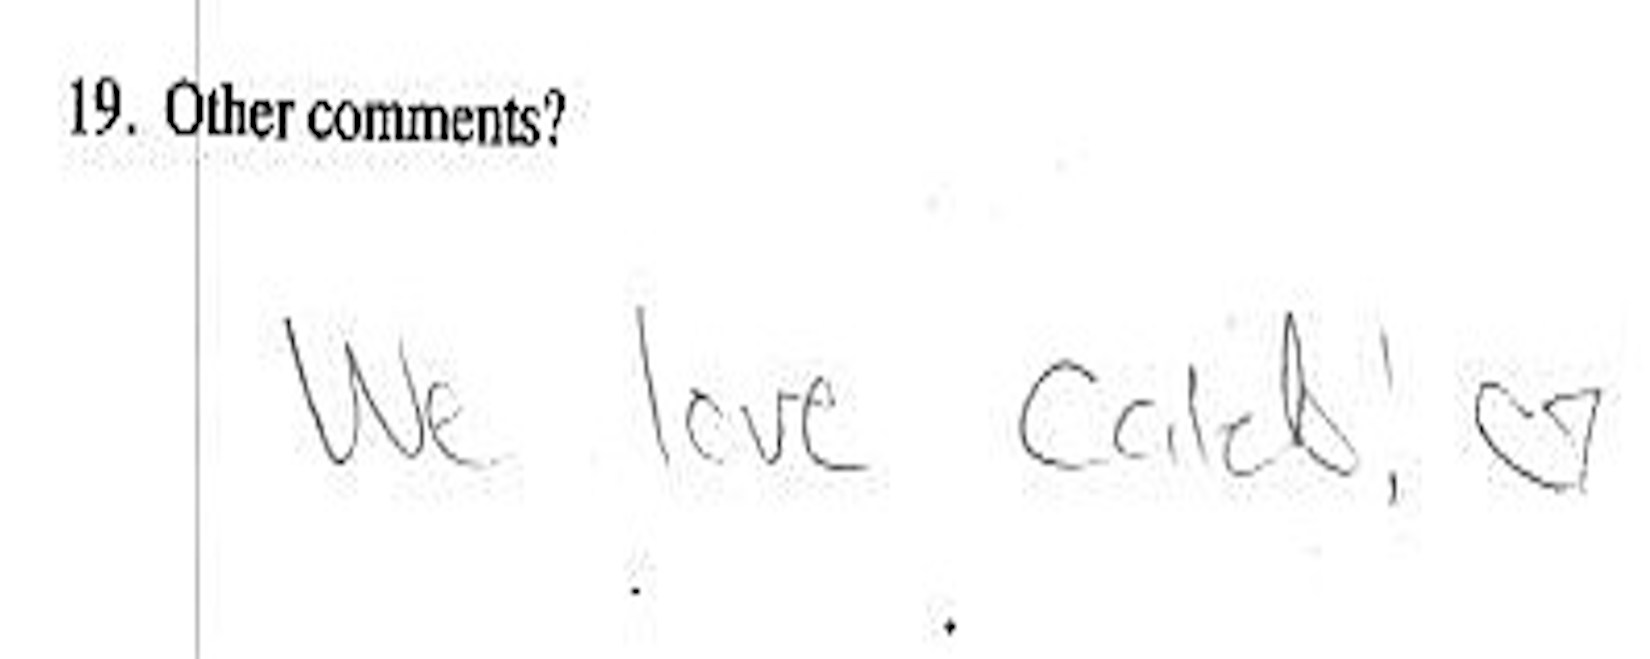 19. Other comments?
We love Caleb! ♡